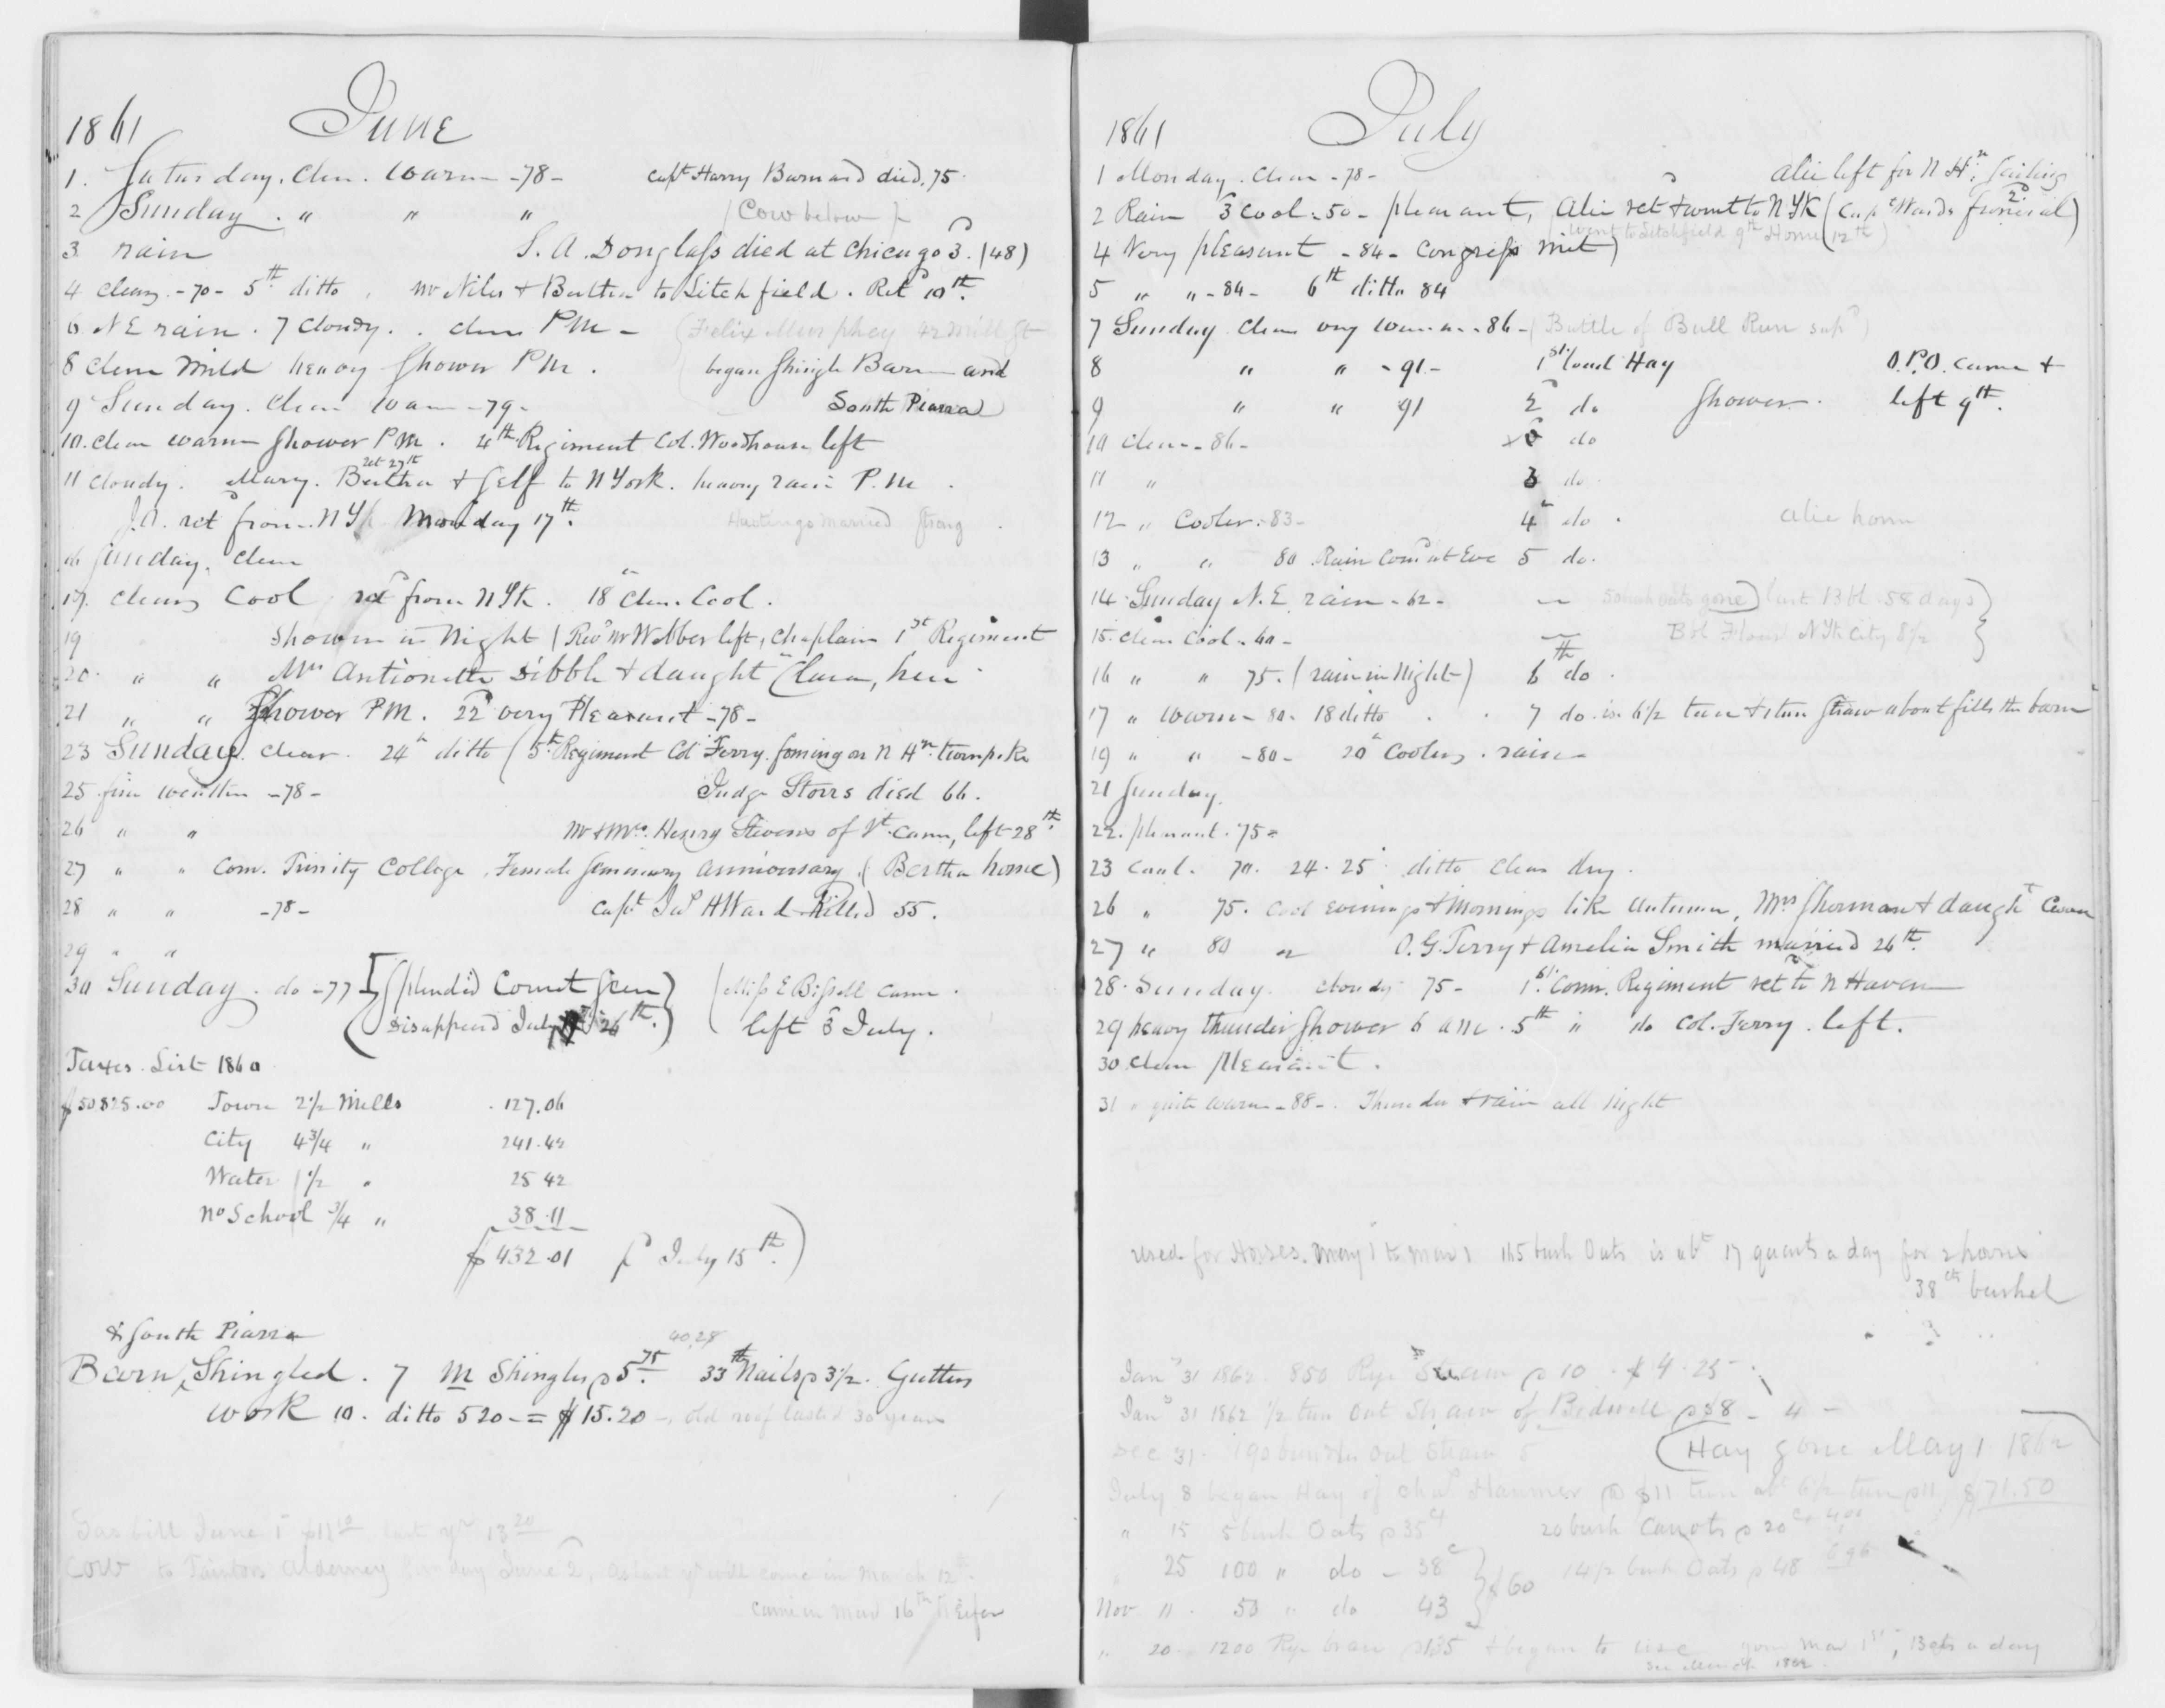 1861 June
1. Saturday. Clear. Warm -78- Capt Harry Barnard died. 75.
2 Sunday. " " " (Cow below)
3 rain S. A. Donglass died at Chicago 3. (48)
4 clear. -70- 5th ditto, Mr Niles & Bertha to Litchfield. Ret 10th.
6 N E rain. 7 Cloudy. . clear P M - (Felix Murphey 42 Mill St
8 clear mild heavy Shower P M. (began Shingle Barn and
9 Sunday. Clear warm -79- South Piazza)
10. clear warm Shower P M. 4th Regiment Col. Woodhouse left
ret 27th
11 cloudy. Mary. Bertha & Self to N York. heavy rain P. M.
J. O. ret from N Yk Monday 17th. Hastings married Strong
16 Sunday. Clear
17. clear Cool ret from N Yk. 18" Clear. Cool.
19 Shower in Night (Revd Mr Webber left, Chaplain 1st Regiment
20. " " Mrs Antionette Sibble & daught Clara, here
21 " " Shower P M. 22d very Pleasant -78-
23 Sunday. Clear. 24" ditto (5th Regiment Col Ferry. forming on N Hn. turnpike
25 fine weather -78- Judge Storrs died 66.
26 " " Mr & Mrs. Henry Stevens of Vt. came, left 28th.
27 " " Com. Trinity College. Female Seminary anniversary. (Bertha home)
28 " " -78- Capt Jas H Ward killed 55.
29 " "
30 Sunday. do -77 [Splendid Comet seen) (Miss E Bissell came.
Disappeared July 26th.) left 8 July.
Taxes. List 1860
$50825.00 Town 2 1/2 Mills . 127.06
City 4 3/4 " 241.42
Water 1/2 " 25 42
No School 3/4 " 38.11
$432.01 pd July 15th.)
& South Piazza
40.28
Barn, Shingled. 7 M Shingles p 5.75 33lb Nails p 3 1/2. Gutters
work 10. ditto 5 20 - = $15.20 -. old roof lasted 30 years
Gas bill June 1 $11 10 last yr 13 20
Cow to Taintors Alderney Sunday June 2, as last yr will come in March 12th.
came in Mar 16th Heifer
1861 July
1 Monday. Clear -78- Alie left for N Hn. sailing
2 Rain 3 Cool. 50 - pleasant, Alie ret & went to N Yk (Capt Wards funeral)
(went to Litchfield 9th Home (12th)
4 Very pleasant -84- Congress met)
5 " " -84- 6th ditto 84
7 Sunday. Clear very warm. -86- (Battle of Bull Run
8 " " -91- 1st load Hay O. P. O. came &
9 " " 91 2 do Shower. left 9th.
10 clear -86- do
11 " 3 do.
12 " Cooler. 83- 4 do. Alie home
13 " " 80 Rain Comd at Eve 5 do.
14. Sunday N. E. rain -62- gone) last Bbl 58 days)
15. clear Cool. 60- Bbl Flour N Yk City, 8 1/2
16 " " 75. (rain in Night) 6th do.
17 " warm 80. 18 ditto . . 7 do. is 6 1/2 tun & 1 tun Straw about fills the barn
19 " " -80- 20" Cooler. rain
21 Sunday.
22. pleasant. 75-
23 cool. 70. 24. 25" ditto clear dry.
26 " 75. Cool evenings & mornings like Autumn, Mrs Shermant & daught Came
27 " 80 " O. G. Terry & Amelia Smith married 26th.
28. Sunday. cloudy 75- 1st. Conn. Regiment ret to N Haven
29 heavy thunder Shower 6 a m. 5th " do Col. Ferry. left.
30 clear pleasant.
31 " quite warm -88-. Thunder & rain all night
used for Horses. to Mar 1 165 bush Oats is abt 17 quarts a day for 2 horses
38 cts bushel
Jany 31 1862. 850 Rye Straw p 10 - $4.25
Jany 31 1862 1/2 tun Oat Straw of Bidwell p $8 - 4 -
Dec 31. 190 bundles Oat Straw 5 (Hay gone May 1. 1862
July 8 began Hay of Chas Hanmer @ $11 tun abt 6 1/2 tun p 11 $71.50
" 15 5 bush Oats p 35 ct 20 bush Carrots p 20 cts 4.00
" 25 100 " do - 38c 14 1/2 bush Oats p 48 6 96
Nov 11. 50 " do 43 } $60
" 20. 1200 Rye bran p 135 & began to use gone Mar 1st, 13 qts a day
See March 1862.